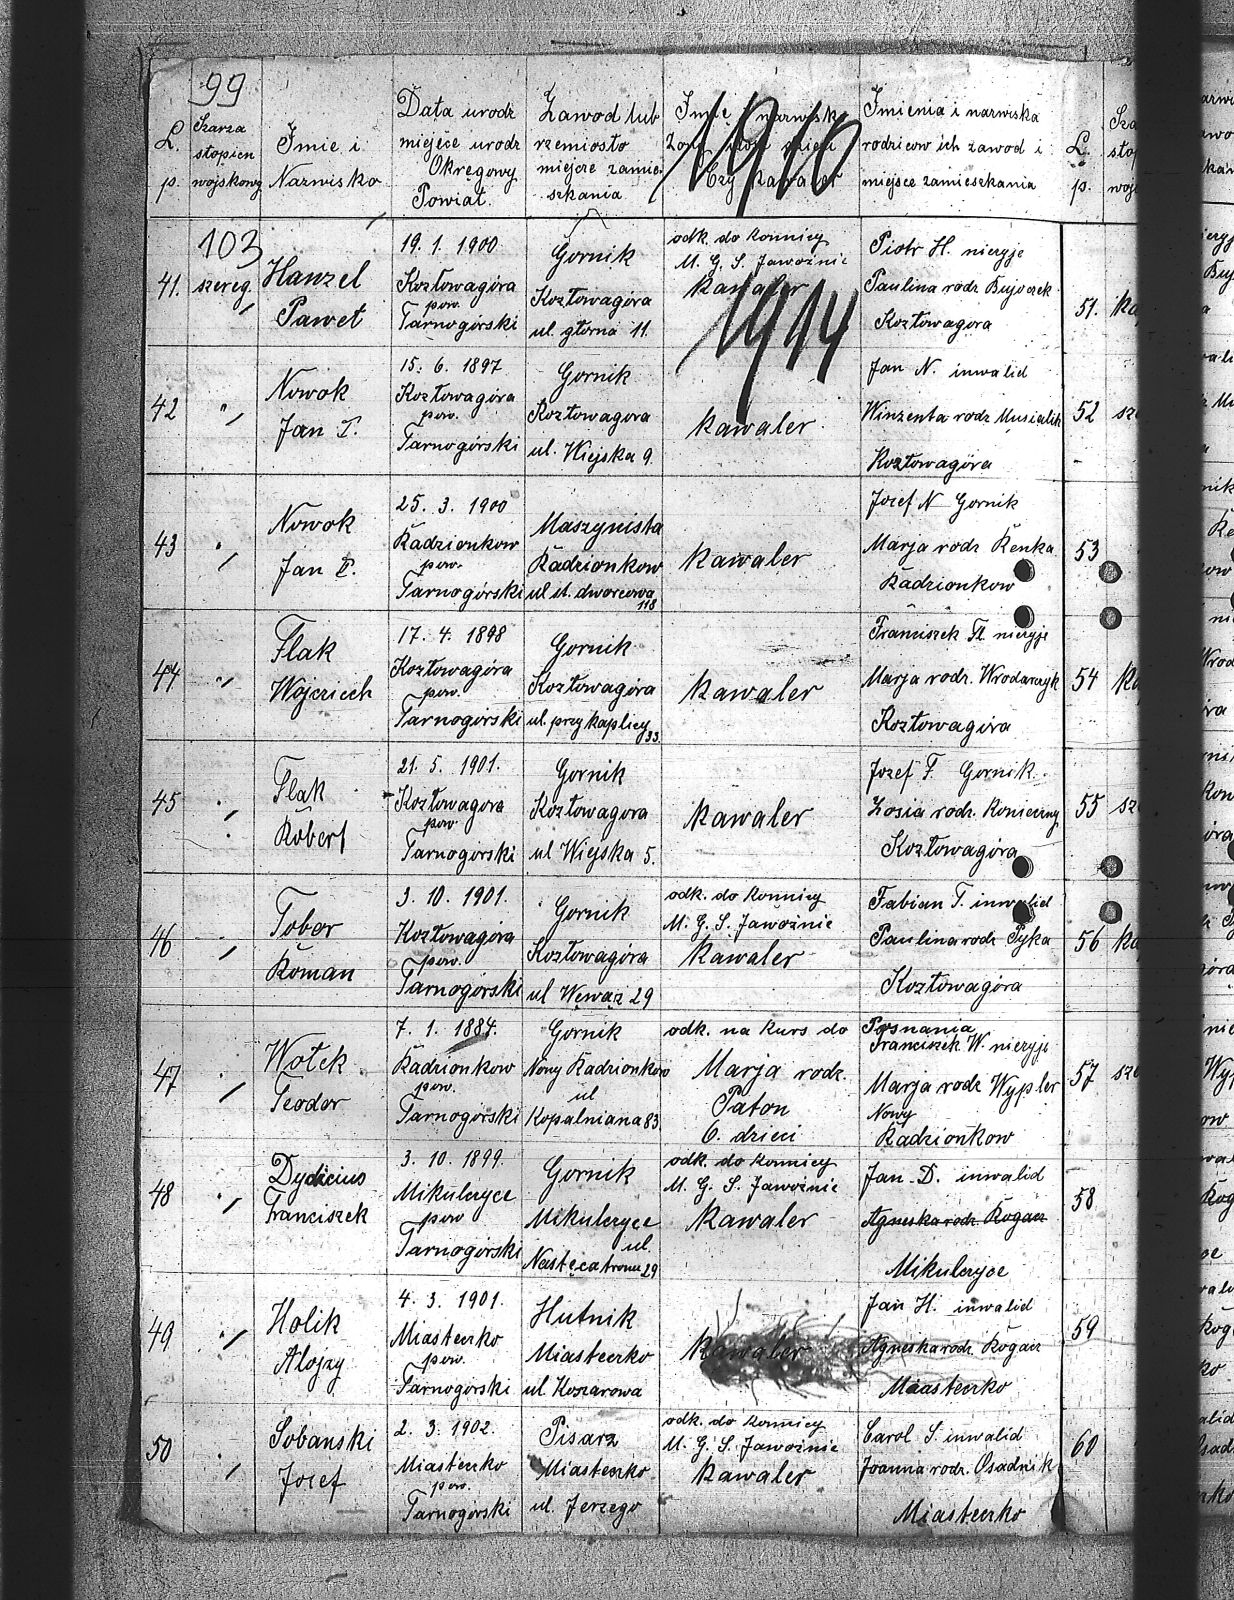 99
L.
p.
Szarza
stopien
wojskowy
Imie i
Nazwisko
Data urodz
miejsce urodz
Okręgowy
Powiat.
Zawod lub
rzemiosło
miejsce zamie-
szkania
Imie i nazwisko
Czy kawaler
1910
Imienia i narwiska
rodzicow ich zawod i
miejsce zamieszkania
L.
p.
103
41.
szereg.
Hanzel
Paweł
19. 1. 1900
Kozłowagóra
pow.
Tarnogórski
Gornik
Kozłowagóra
ul. głorna 11.
odk. do Konnicy
M. G. S. Jawoźnie
Kawaler
1914
Piotr H. nieżyje
Paulina rodz Bujoczek
Kozłowagora
51.
42
"
Nowok
Jan I.
15. 6. 1897
Kozłowagóra
pow.
Tarnogórski
Gornik
Kozłowagora
ul. Wiejska 9.
Kawaler
Jan N. inwalid
Winzenta rodz Musialik
Kozłowagóra
52
43
"
Nowok
Jan II.
25. 3. 1900
Radzionkow
pow.
Tarnogórski
Maszynista
Radzionkow
ul st. dworcowa
118
Kawaler
Jozef N Gornik
Marja rodz Renka
Radzionkow
53
44
"
Flak
Wojciech
17. 4. 1898
Kozłowagóra
pow.
Tarnogórski
Gornik
Kozłowagóra
ul. przy kaplicy
33.
Kawaler
Franciszek Fl. nieżyje
Marja rodz. Wrodarczyk
Kozłowagóra
54
45
"
Flak
Robert
21. 5. 1901.
Kozłowagora
pow.
Tarnogórski
Gornik
Kozłowagora
ul Wiejska 5.
Kawaler
Jozef F. Gornik.
Zosia rodz. Konieczny
Kozłowagóra
55
46
"
Tobor
Roman
3. 10. 1901.
Kozłowagóra
pow.
Tarnogórski
Gornik
Kozłowagóra
ul Wąwaz 29
odk. do Konnicy
M. G. S. Jawoźnie
Kawaler
Fabian T. inwalid
Paulina rodz Pyka
Kozłowagóra
56
47
"
Wołek
Teodor
7. 1. 1884.
Radzionkow
pow.
Tarnogórski
Gornik
Nowy Radzionkow
ul
Kopalniana 83.
odk. na kurs do Poznania
Marja rodz.
Paton
6. dzieci
Franciszek W. nieżyje
Marja rodz Wypler
Nowy
Radzionkow
57
48
"
Franciszek
3. 10. 1899.
Mikulczyce
pow
Tarnogórski
Gornik
Mikulczyce
ul.
odk. do Konnicy
M. G. S. Jawoźnie
Kawaler
Jan D. inwalid
Agneska rodz. Rogacz
Mikulczyce
58
49
"
Holik
Alojzy
4. 3. 1901.
Miasteczko
pow.
Tarnogórski
Hutnik
Miasteczko
ul Koszarowa
Kawaler
Jan H. inwalid
Agneska rodz. Rogacz
Miasteczko
59
50
"
Sobanski
Jozef
2. 3. 1902.
Miasteczko
pow.
Tarnogórski
Pisarz
Miasteczko
ul. Jerzego
odk. do Konnicy
M. G. S. Jawoźnie
Kawaler
Carol S. inwalid
Joanna rodz. Osadnik
Miasteczko
60